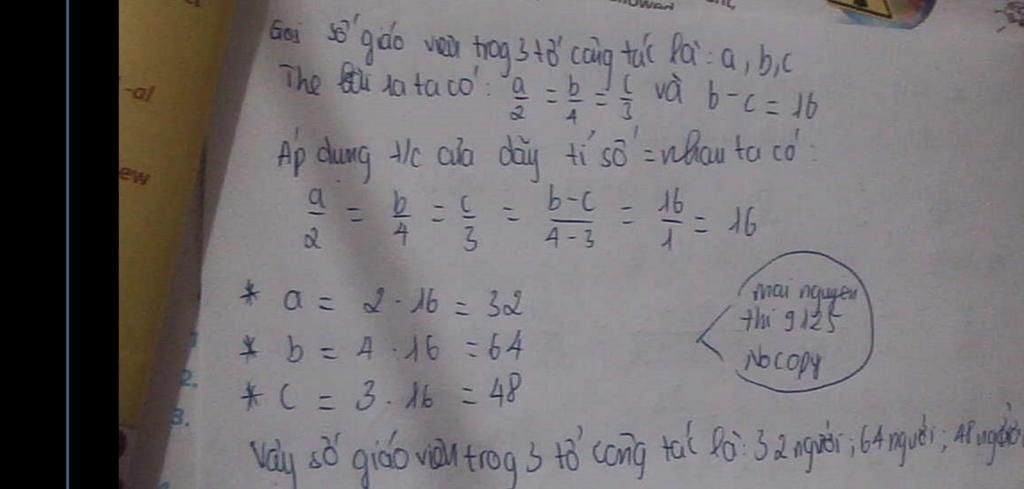 Gọi số giáo viên trog 3 tổ công tác là: a, b, c
Theo đầu ta ta có: a/2 = b/4 = c/3 và b - c = 16
Áp dụng t/c của dãy tỉ số = nhau ta có:
a/2 = b/4 = c/3 = b-c/4-3 = 16/1 = 16
* a = 2 . 16 = 32
* b = 4 . 16 = 64
* c = 3 . 16 = 48
Vậy số giáo viên trog 3 tổ công tác là: 32 người; 64 người; 48 người
mai nguyen
thi 9125
No copy
-al
ew
2.
3.